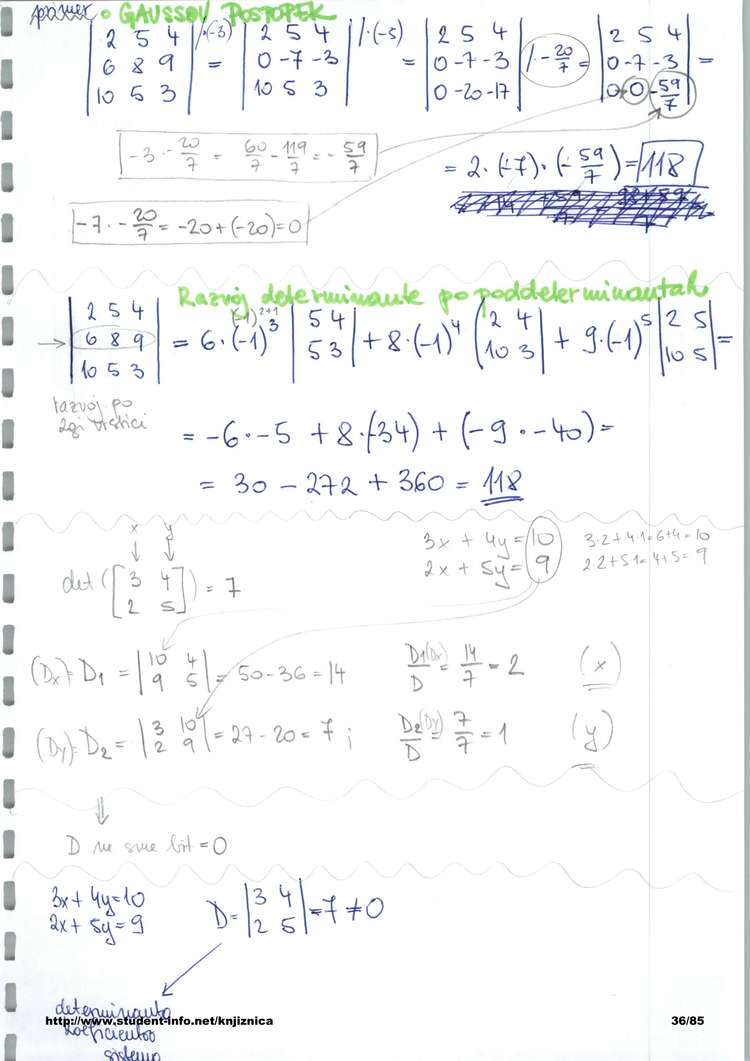 primer • GAUSSOV POSTOPEK
| 2 5 4 | /·(-3) | 2 5 4 | /·(-5) | 2 5 4 | | 2 5 4 |
| 6 8 9 | = | 0 -7 -3 | = | 0 -7 -3 | /·-20/7 = | 0 -7 -3 | =
| 10 5 3 | | 10 5 3 | | 0 -20 -17 | | 0 0 -59/7 |
-3 · -20/7 = 60/7 - 119/7 = -59/7
= 2·(-7)·(-59/7) = 118
-7 · -20/7 = -20+(-20)=0
Razvoj determinante po poddeterminantah
| 2 5 4 | (-1)²⁺¹
→ | 6 8 9 | = 6·(-1)³ | 5 4 ; 5 3 | + 8·(-1)⁴ | 2 4 ; 10 3 | + 9·(-1)⁵ | 2 5 ; 10 5 | =
| 10 5 3 |
razvoj po
2gi vrstici
= -6·-5 + 8·(-34) + (-9·-40) =
= 30 - 272 + 360 = 118
x y
↓ ↓
det([3 4 ; 2 5]) = 7
3x + 4y = 10 3·2+4·1=6+4=10
2x + 5y = 9 2·2+5·1=4+5=9
(Dx)= D1 = | 10 4 ; 9 5 | = 50-36 = 14 D1(Dx)/D = 14/7 = 2 (x)
(Dy)= D2 = | 3 10 ; 2 9 | = 27-20 = 7 ; D2(Dy)/D = 7/7 = 1 (y)
⇓
D ne sme bit = 0
3x + 4y = 10
2x + 5y = 9
D = | 3 4 ; 2 5 | = 7 ≠ 0
determinanta
koeficientov
sistema
http://www.student-info.net/knjiznica
36/85